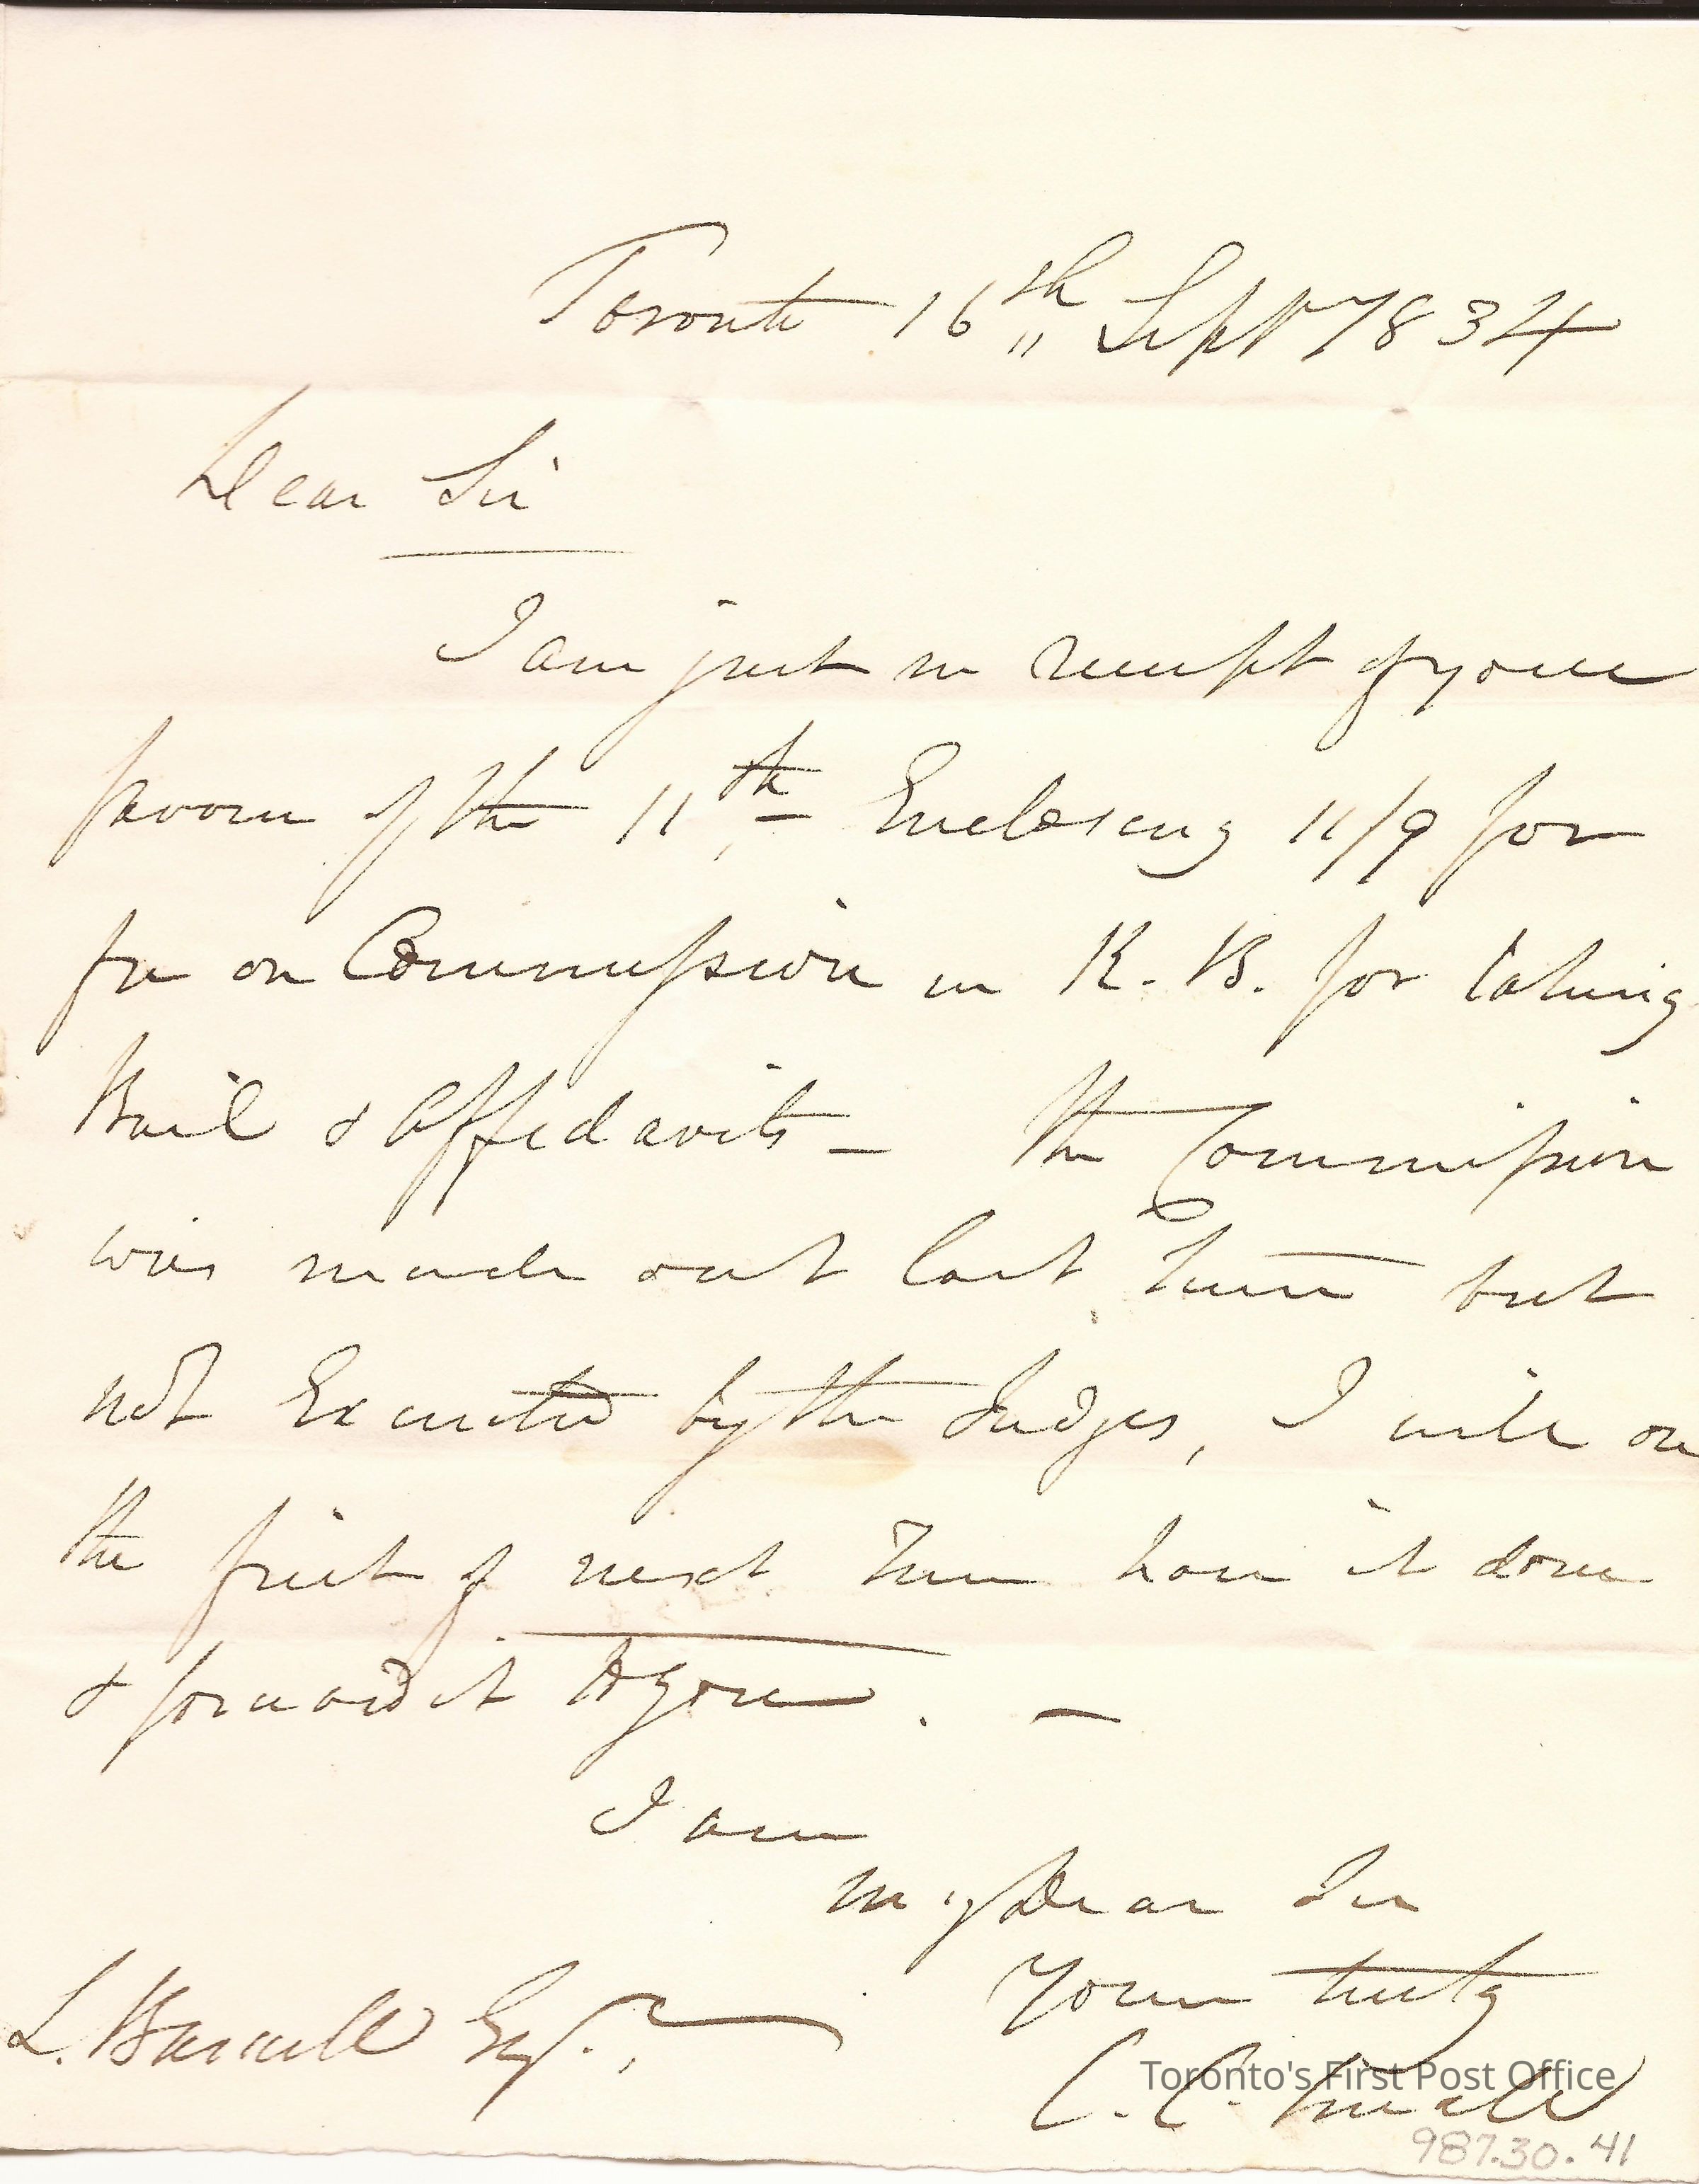 Toronto 16th Septr 1834
Dear Sir
I am just in receipt of your
favour of the 11th Enclosing 11/9 for
fee on Commission in K. B. for taking
Bail & Affidavits – The Commission
was made out last Term but
not Executed by the Judges, I will on
the first of next Term have it done
& forward it to you. –
I am
My Dear Sir
Yours truly
L. Burwell Esqr.
C. C. Small
Toronto's First Post Office
987.30.41